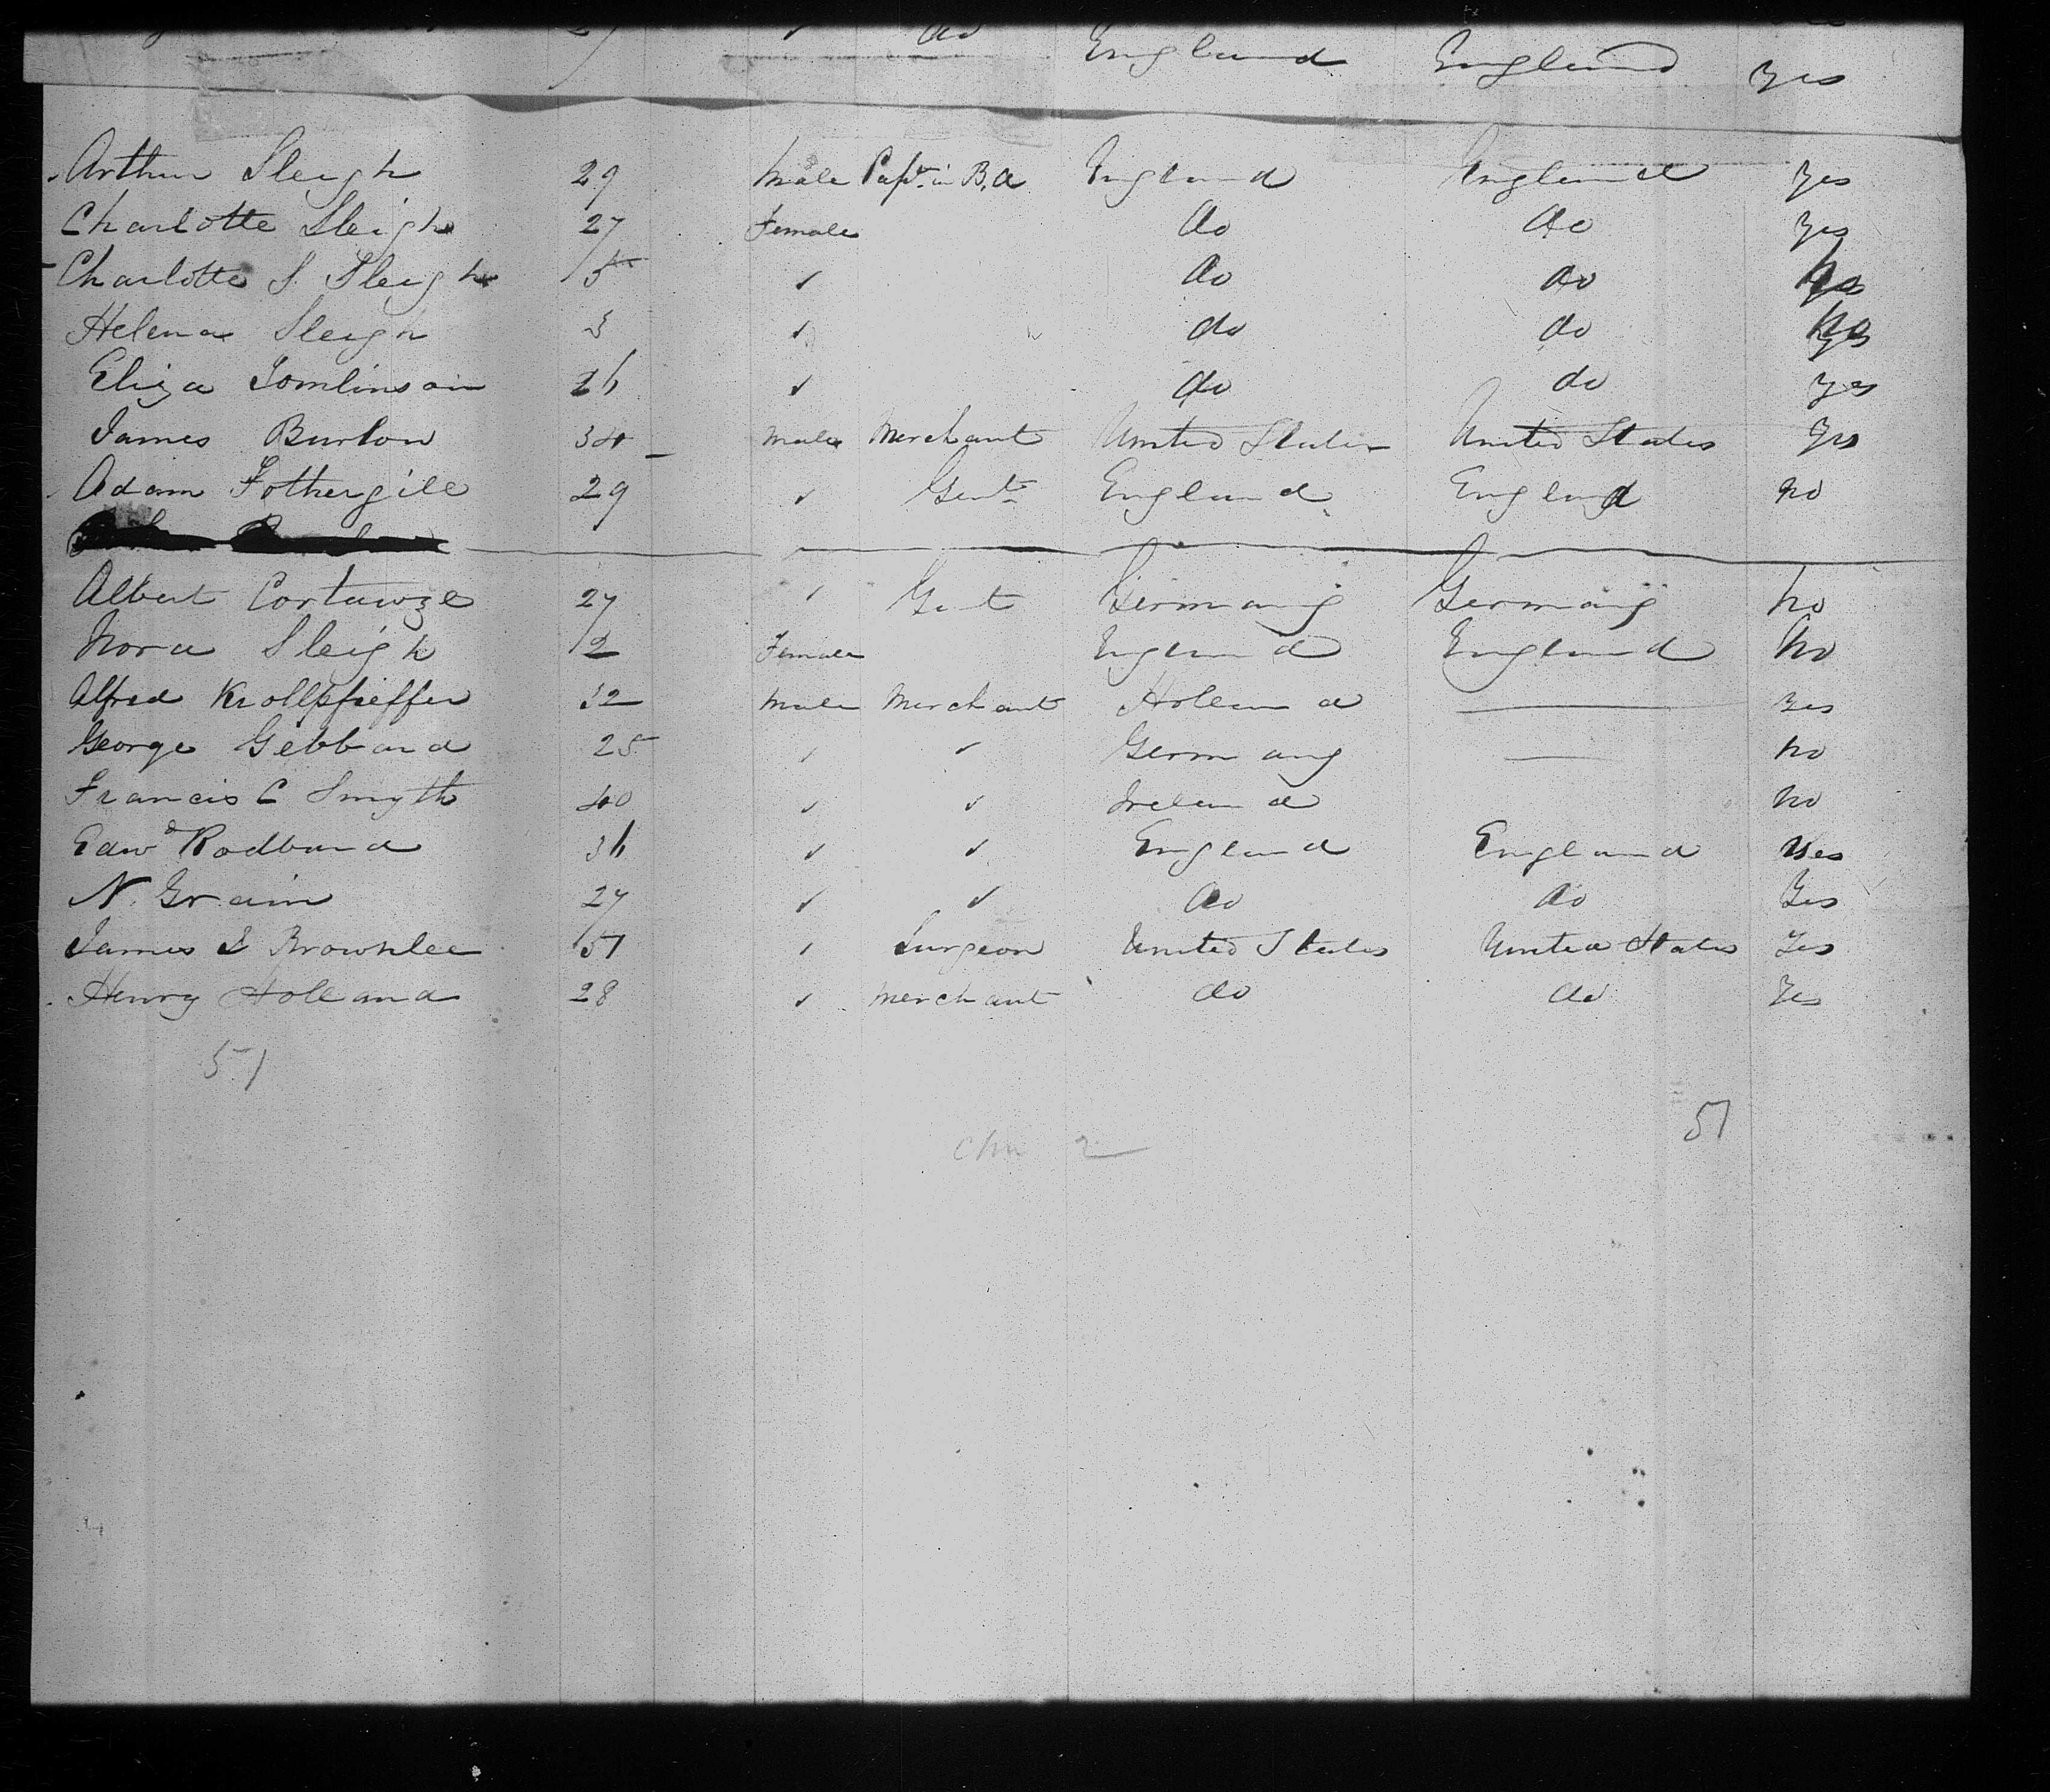 27 ✓ do England England yes
Arthur Sleigh 29 Male Capt. in B. A England England yes
Charlotte Sleigh 27 Female do do yes
Charlotte S. Sleigh 5 ✓ do do no
Helena Sleigh 3 ✓ do do no
Eliza Tomlinson 26 ✓ do do yes
James Burton 34 male Merchant United States United States yes
Adam Fothergill 29 ✓ Gent England England no
Albert 27 ✓ Gent Germany Germany no
Nora Sleigh 2 Female England England No
Alfred Krollpfieffer 32 male Merchant Holland yes
George Gebband 25 ✓ ✓ Germany no
Francis C Smyth 40 ✓ ✓ Ireland no
Edwd Rodband 36 ✓ ✓ England England Yes
N. Grain 27 ✓ ✓ do do Yes
James I Brownlee 51 ✓ Surgeon United States United States Yes
Henry Holland 28 ✓ merchant do do Yes
51
51